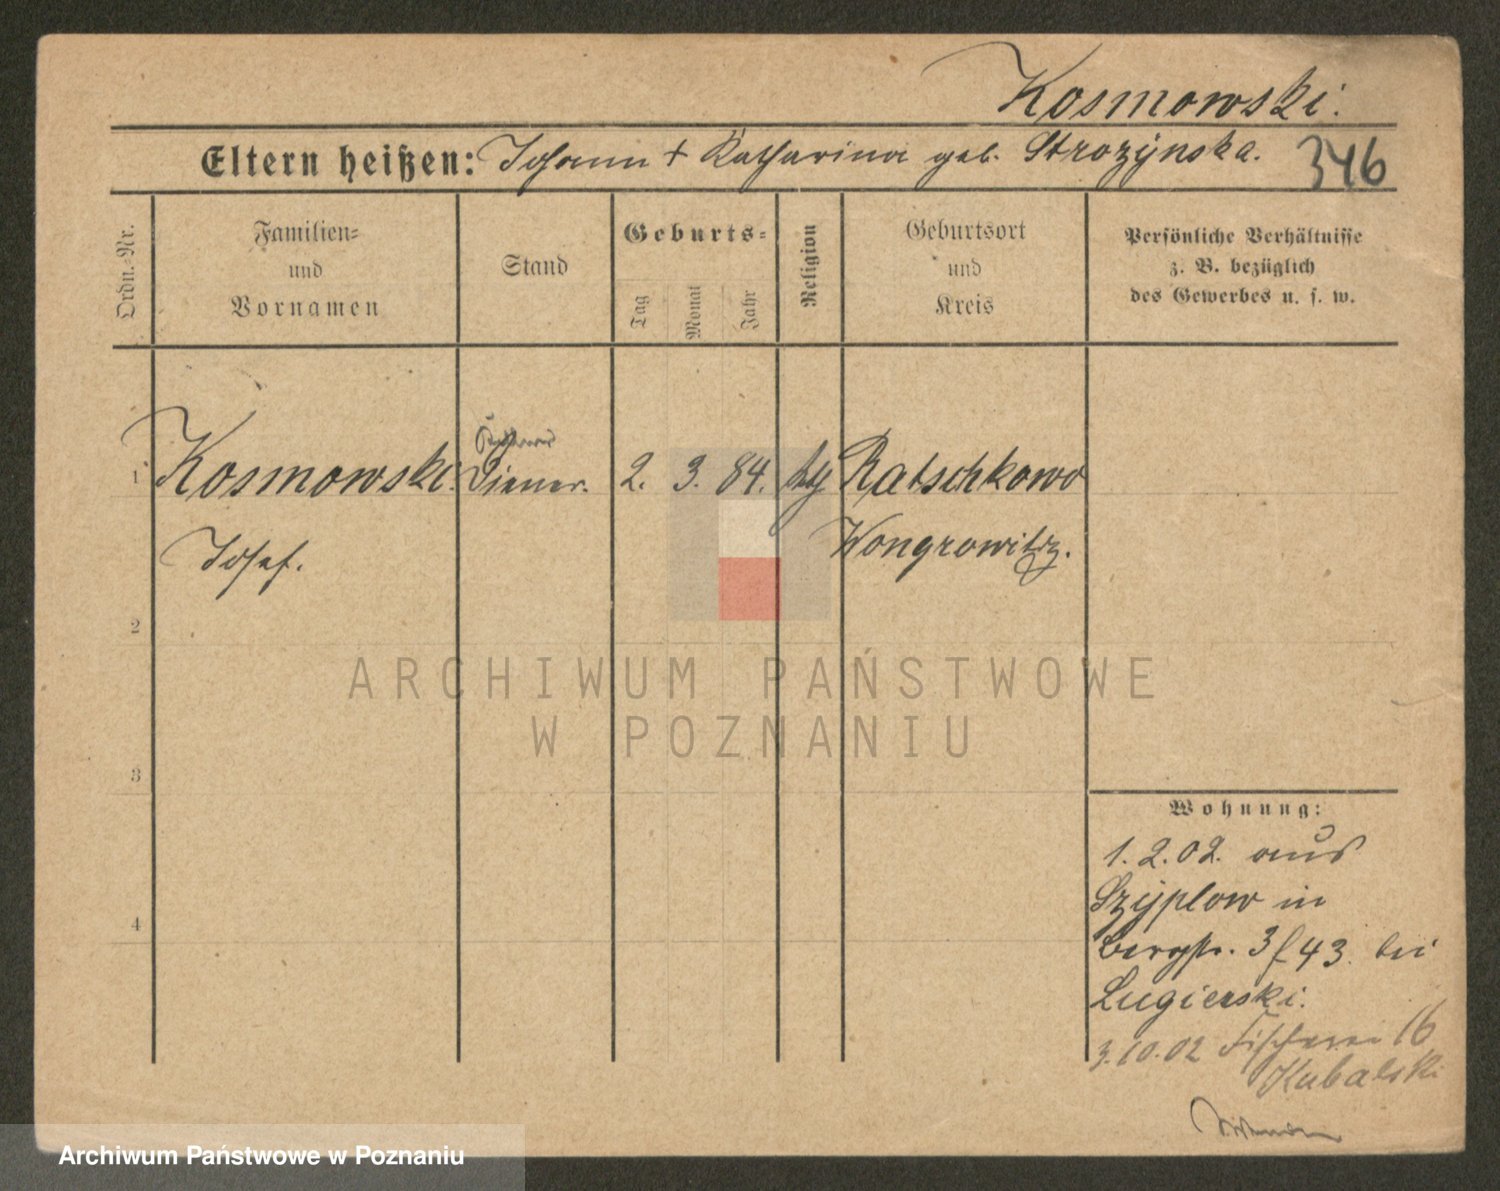 Kosmowski.
Eltern heißen: Johann + Katharina geb. Strozÿnska. 346
Ordn.-Nr.
Familien-
und
Vornamen
Stand
Geburts-
Tag
Monat
Jahr
Religion
Geburtsort
und
Kreis
Persönliche Verhältnisse
z. B. bezüglich
des Gewerbes u. s. w.
1 Kosmowski. Diener. 2. 3. 84. Ratschkowo
Josef. Wongrowitz.
2
3
4
ARCHIWUM PAŃSTWOWE
W POZNANIU
Wohnung:
1.2.02. aus
Szÿplow in
Bergstr. 3 43. bei
Lugierski.
3.10.02 Fischerei 16
Kubalski
Archiwum Państwowe w Poznaniu